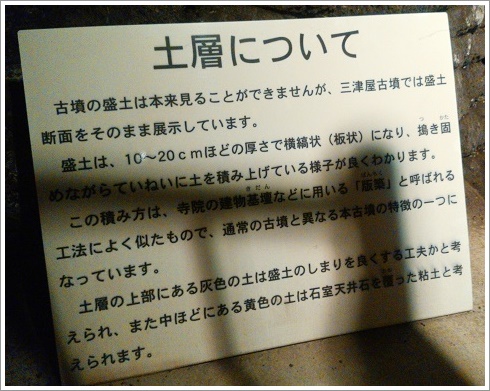 土層について
古墳の盛土は本来見ることができませんが、三津屋古墳では盛土
断面をそのまま展示しています。
盛土は、10〜20cmほどの厚さで横縞状(板状)になり、搗き固
めながらていねいに土を積み上げている様子が良くわかります。
この積み方は、寺院の建物基壇などに用いる「版築」と呼ばれる
工法によく似たもので、通常の古墳と異なる本古墳の特徴の一つに
なっています。
土層の上部にある灰色の土は盛土のしまりを良くする工夫かと考
えられ、また中ほどにある黄色の土は石室天井石を覆った粘土と考
えられます。